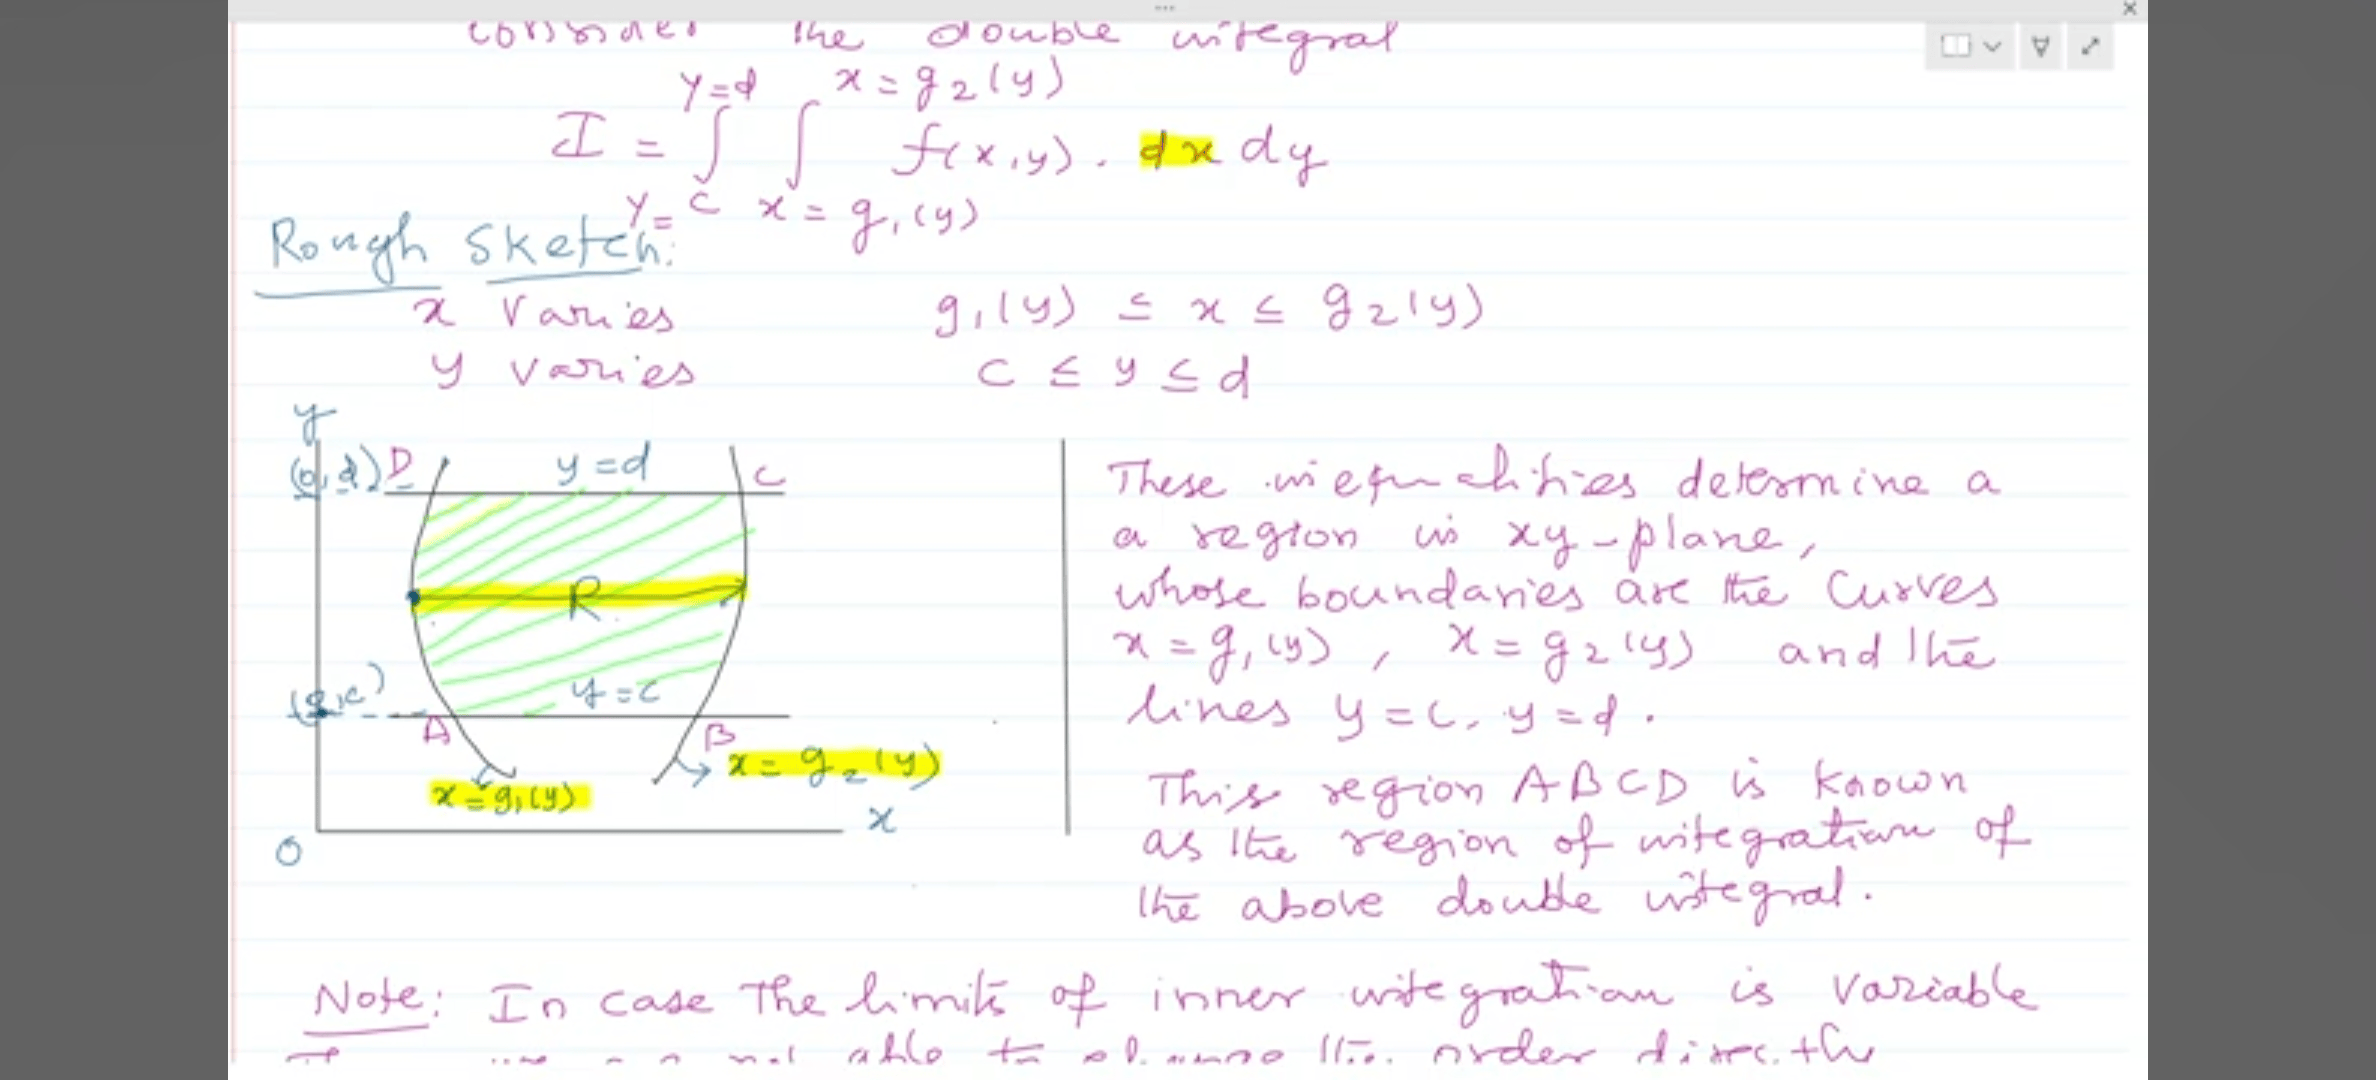 consider the double integral
y=d x=g2(y)
I = ∫ ∫ f(x,y). dx dy
y=c x=g1(y)
Rough Sketch:
x varies g1(y) ≤ x ≤ g2(y)
y varies c ≤ y ≤ d
y
(0,d) D y=d C
R
(0,c) y=c
A B
x=g2(y)
x=g1(y)
x
O
These inequalities determine a
a region in xy-plane,
whose boundaries are the curves
x=g1(y), x=g2(y) and the
lines y=c, y=d.
This region ABCD is known
as the region of integration of
the above double integral.
Note: In case the limits of inner integration is variable
able to change the order directly